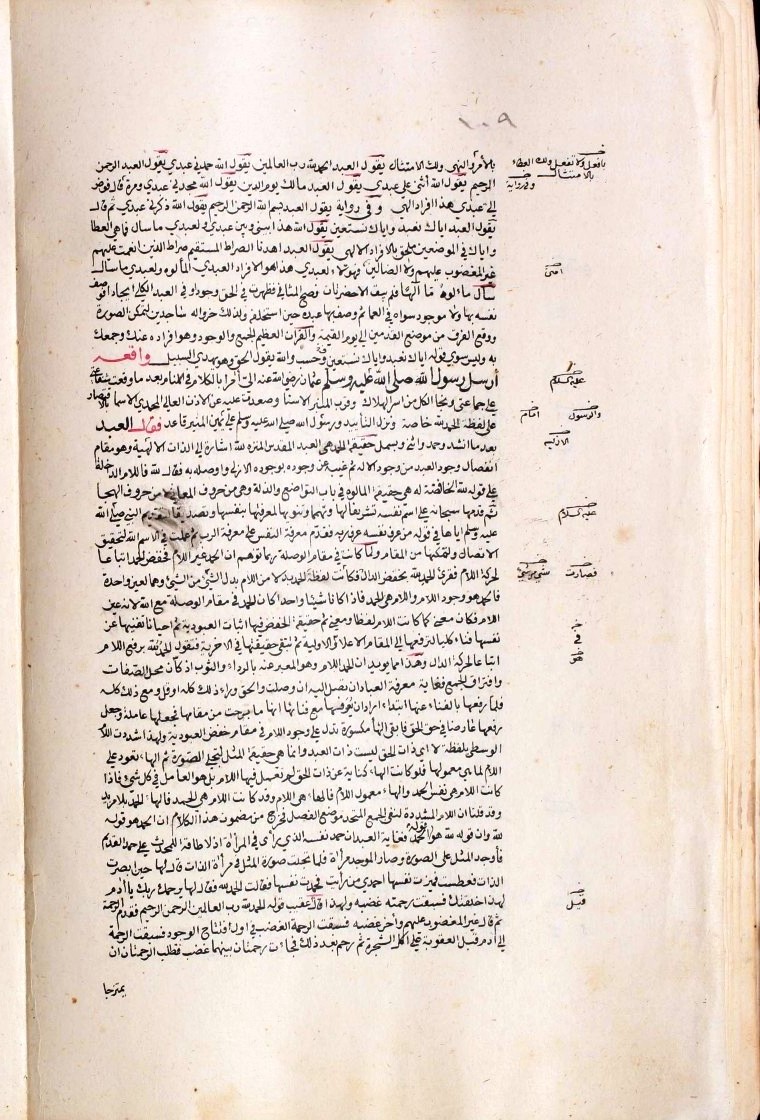 ١٠٩
بالأمر والنهي ولك الامتثال يقول العبد الحمد لله رب العالمين يقول الله حمدني عبدي يقول العبد الرحمن
الرحيم يقول الله أثنى علي عبدي يقول العبد مالك يوم الدين يقول الله مجدني عبدي ومرة قال فوض
إلي عبدي هذا افراد الهي وفي رواية يقول العبد بسم الله الرحمن الرحيم يقول الله ذكرني عبدي ثم قال
يقول العبد اياك نعبد واياك نستعين يقول الله هذا بيني وبين عبدي ولعبدي ما سأل فما هي العطا
واياك في الموضعين ملحق بالافراد الالهي يقول العبد اهدنا الصراط المستقيم صراط الذين انعمت عليهم
غير المغضوب عليهم ولا الضالين فهؤلاء لعبدي هذا هو الافراد العبدي المألوه ولعبدي ما سأل
سأل مألوه ما الها فلم يبق الا حضرتان فصح المثاني فظهرت في الحق وجودا وفي العبد الكلي ايجادا فوصف
نفسه بها ولا موجود سواه في العماء ثم وصف بها عبده حين استخلفه ولذلك خروا له ساجدين لتمكن الصورة
ووقع الفرق من موضع القدمين الى يوم القيمة والقرآن العظيم الجمع والوجود وهو افراده عنك وجمعك
به وليس سوى قوله اياك نعبد واياك نستعين وحسب والله يقول الحق وهو يهدي السبيل واقعه
أرسل رسول الله صلى الله عليه وسلم عثمان رضي الله عنه الي آمرا بالكلام في المنام بعد ما وقعت شفاعتي
على جماعتي ونجا الكل من أسر الهلاك وقرب المنبر الاسنا وصعدت عليه عن الاذن العالي المحمدي الاسما بالاقتصار
على لفظة الحمد لله خاصة ونزل التأييد ورسول الله صلى الله عليه وسلم على يمين المنبر قاعد فقال العبد
بعد ما انشد وحمد واثنى وبسمل حقيقة الحمد هي العبد المقدس المنزه لله اشارة الى الذات الالهية وهو مقام
انفصال وجود العبد من وجود الاله ثم غيبه عن وجوده بوجوده الازلي واوصله به فقال لله فاللام الداخلة
على قوله لله الخافضة له هي حقيقة المألوه في باب التواضع والذلة وهي من حروف المعاني لا من حروف الهجا
ثم قدمها سبحانه على اسم نفسه تشريفا لها وتهمما وتنويها لمعرفتها بنفسها وتصديقا لتقديم النبي صلى الله
عليه وسلم اياها في قوله من عرف نفسه عرف ربه فقدم معرفة النفس على معرفة الرب ثم عملت في الاسم الله لتحقيق
الاتصال وتمكنها من المقام ولما كانت في مقام الوصلة ربما توهم ان الحمد غير اللام فخفض الحمد اتباعا
لحركة اللام فقرئ الحمد لله بخفض الدال فكانت لفظة الحمد بدلا من اللام بدل الشئ من الشئ وهما لعين واحدة
فالحمد هو وجود اللام واللام هي الحمد فاذا كانا شيئا واحدا كان الحمد في مقام الوصلة مع الله لانه عين
اللام فكان معنى كما كانت اللام لفظا ومعنى ثم حقيقة الخفض فيها اثبات العبودية ثم احيانا تفنيها عن
نفسها فناء كليا لترفعها الى المقام الاعلا في الاولية ثم تبقى حقيقتها في الاخرية فتقول الحمد لله برفع اللام
اتباعا لحركة الدال وهذا مما يؤيد ان الحمد اللام وهو المعبر عنه بالرداء والثوب اذ كان محل الصفات
وافتراق الجمع فغاية معرفة العباد ان تصل اليه ان وصلت والحق وراء ذلك كله او قل ومع ذلك كله
فلما رفعها بالفناء عنها ابتداء اراد ان يعرفها مع فنائها انها ما برحت من مقامها فجعلها عاملة وجعل
رفعها عارضا في حق الحق فابقى الها مكسورة تدل على وجود اللام في مقام خفض العبودية ولهذا شددت اللام
الوسطى بلفظة لا اي ذات الحق ليست ذات العبد وانما هي حقيقة المثل لتجلي الصورة ثم الها تعود على
اللام لما هي معمولها فلو كانت الها كناية عن ذات الحق لم تعمل فيها اللام بل هو العامل في كل شئ فاذا
كانت اللام هي نفس الحمد والها معمول اللام فالها هي اللام وقد كانت اللام هي الحمد فالها الحمد بلا مزيد
وقد قلنا ان اللام المشددة لنفي الجمع المتحد موضع الفصل فخرج من مضمون هذا الكلام ان الحمد هو قوله
لله وان قوله لله هو الحمد قوله فغاية العبد ان حمد نفسه الذي رأى في المرآة اذ لا طاقة للمحدث على حمد القديم
فأوجد المثل على الصورة وصار الموجد مرآة فلما تجلت صورة المثل في مرآة الذات قال لها حين ابصرت
الذات فعطست فميزت نفسها احمدي من رأيت فحمدت نفسها فقالت الحمد لله فقال لها يرحمك ربك يا آدم
لهذا خلقتك فسبقت رحمته غضبه ولهذا قال عقيب قوله الحمد لله رب العالمين الرحمن الرحيم فقدم الرحمة
ثم قال غير المغضوب عليهم وأخر غضبه فسبقت الرحمة الغضب في اول افتتاح الوجود فسبقت الرحمة
الى آدم قبل العقوبة على اكل الشجرة ثم رحم بعد ذلك فجاءت رحمتان بينهما غضب فتطلب الرحمتان ان
يمتزجا
بافعل ولا تفعل ولك العطاء
بالامتثال
وفي رواية
عليه السلام
والرسول
الازليه
عليه السلام
فصارت
في
هو
قبل